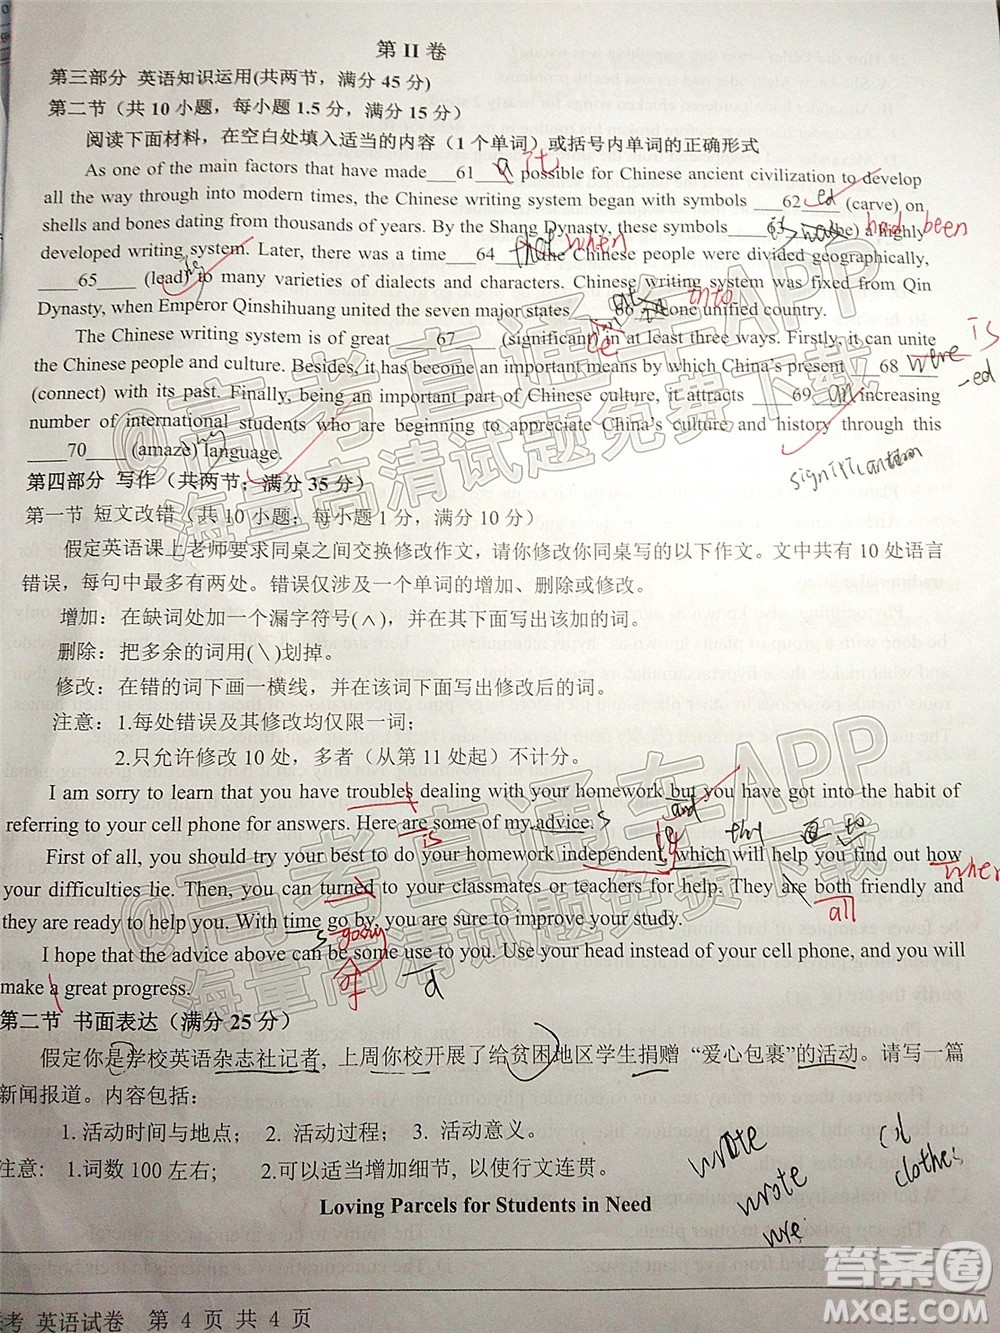 第 II 卷
第三部分 英语知识运用(共两节，满分 45 分)
第二节（共 10 小题，每小题 1.5 分，满分 15 分）
阅读下面材料，在空白处填入适当的内容（1 个单词）或括号内单词的正确形式
As one of the main factors that have made___61___ it possible for Chinese ancient civilization to develop
all the way through into modern times, the Chinese writing system began with symbols ___62___ ed (carve) on
shells and bones dating from thousands of years. By the Shang Dynasty, these symbols___63___(be) a highly had been
developed writing system. Later, there was a time___64___ when the Chinese people were divided geographically,
___65___ (lead) to many varieties of dialects and characters. Chinese writing system was fixed from Qin
Dynasty, when Emperor Qinshihuang united the seven major states ___66___ into one unified country.
The Chinese writing system is of great ___67___ (significant) in at least three ways. Firstly, it can unite
the Chinese people and culture. Besides, it has become an important means by which China's present ___68___ were is
(connect) with its past. Finally, being an important part of Chinese culture, it attracts ___69___ an increasing -ed
number of international students who are beginning to appreciate China's culture and history through this
___70___ (amaze) language.
第四部分 写作（共两节；满分 35 分）
第一节 短文改错（共 10 小题；每小题 1 分，满分 10 分）
假定英语课上老师要求同桌之间交换修改作文，请你修改你同桌写的以下作文。文中共有 10 处语言
错误，每句中最多有两处。错误仅涉及一个单词的增加、删除或修改。
增加：在缺词处加一个漏字符号(∧)，并在其下面写出该加的词。
删除：把多余的词用(\)划掉。
修改：在错的词下画一横线，并在该词下面写出修改后的词。
注意：1.每处错误及其修改均仅限一词；
2.只允许修改 10 处，多者（从第 11 处起）不计分。
I am sorry to learn that you have troubles dealing with your homework but you have got into the habit of
and
referring to your cell phone for answers. Here are some of my advice.
is
First of all, you should try your best to do your homework independent, which will help you find out how
your difficulties lie. Then, you can turned to your classmates or teachers for help. They are both friendly and
all
they are ready to help you. With time go by, you are sure to improve your study.
I hope that the advice above can be some use to you. Use your head instead of your cell phone, and you will
of
make a great progress.
第二节 书面表达（满分 25 分）
假定你是学校英语杂志社记者，上周你校开展了给贫困地区学生捐赠 “爱心包裹”的活动。请写一篇
新闻报道。内容包括：
1. 活动时间与地点； 2. 活动过程； 3. 活动意义。
注意： 1.词数 100 左右； 2.可以适当增加细节，以使行文连贯。
wrote
wrote
clothes
Loving Parcels for Students in Need
英语试卷 第 4 页 共 4 页
@高考直通车APP
海量高清试题免费下载
@高考直通车APP
海量高清试题免费下载
答案圈
MXQE.COM